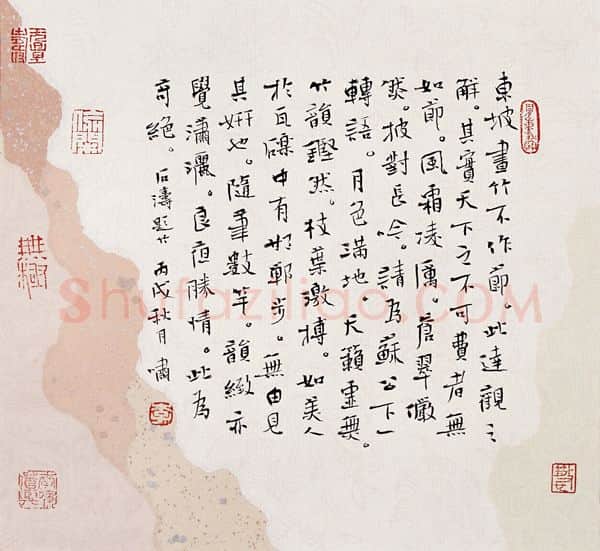 東坡畫竹不作節。此達觀之
解。其實天下之不可費者無
如節。風霜凌厲。蒼翠儼
然。披對長吟。請為蘇公下一
轉語。月色滿地。天籟虛無。
竹韻鏗然。枝葉激搏。如美人
於瓦礫中有邯鄲步。無由見
其妍也。隨筆數竿。韻緻亦
覺瀟灑。良夜勝情。此為
奇絕。石濤題竹 丙戌秋月 嘯
Shufaziliao.COM